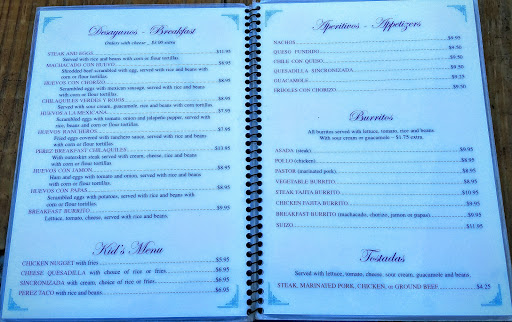 Desayunos - Breakfast
Orders with cheese .. $1.00 extra
STEAK AND EGGS $11.95
Served with rice and beans with corn or flour tortillas
MACHACADO CON HUEVO $8.95
Shredded beef scrambled with egg, served with rice and beans
with corn or flour tortillas.
HUEVOS CON CHORIZO $8.95
Scrambled eggs with mexican sausage, served with rice and beans
with corn or flour tortillas
CHILAQUILES VERDES Y ROJOS $8.95
Served with sour cream, guacamole, rice and beans with corn tortillas.
HUEVOS A LA MEXICANA $7.95
Scrambled eggs with tomato, onion and jalapeño pepper, served with
rice, beans and corn or flour tortillas
HUEVOS RANCHEROS $7.95
Fried eggs covered with ranchero sauce, served with rice and beans
with corn or flour tortillas.
PEREZ BREAKFAST CHILAQUILES $13.95
With outerskirt steak served with cream, cheese, rice and beans
with corn or flour tortillas
HUEVOS CON JAMON $8.95
Ham and eggs with tomato and onions, served with rice and beans
with corn or flour tortillas.
HUEVOS CON PAPAS $8.95
Scrambled eggs with potatoes, served with rice and beans with
corn or flour tortillas.
BREAKFAST BURRITO $9.95
Lettuce, tomato, cheese, served with rice and beans.
Kid's Menu
CHICKEN NUGGET with fries $5.95
CHEESE QUESADILLA with choice of rice or fries $6.95
SINCRONIZADA with cream, choice of rice or fries $6.95
PEREZ TACO with rice and beans $6.95
Aperitivos - Appetizers
NACHOS $9.95
QUESO FUNDIDO $9.50
CHILE CON QUESO $9.50
QUESADILLA SINCRONIZADA $9.50
GUACAMOLE $9.25
FRIJOLES CON CHORIZO $9.50
Burritos
All burritos served with lettuce, tomato, rice and beans.
With sour cream or guacamole - $1.75 extra.
ASADA (steak) $9.95
POLLO (chicken) $8.95
PASTOR (marinated pork) $8.95
VEGETABLE BURRITO $8.95
STEAK FAJITA BURRITO $10.95
CHICKEN FAJITA BURRITO $9.95
BREAKFAST BURRITO (machacado, chorizo, jamon or papas) $9.95
SUIZO $11.95
Tostadas
Served with lettuce, tomato, cheese, sour cream, guacamole and beans.
STEAK, MARINATED PORK, CHICKEN, or GROUND BEEF $4.25